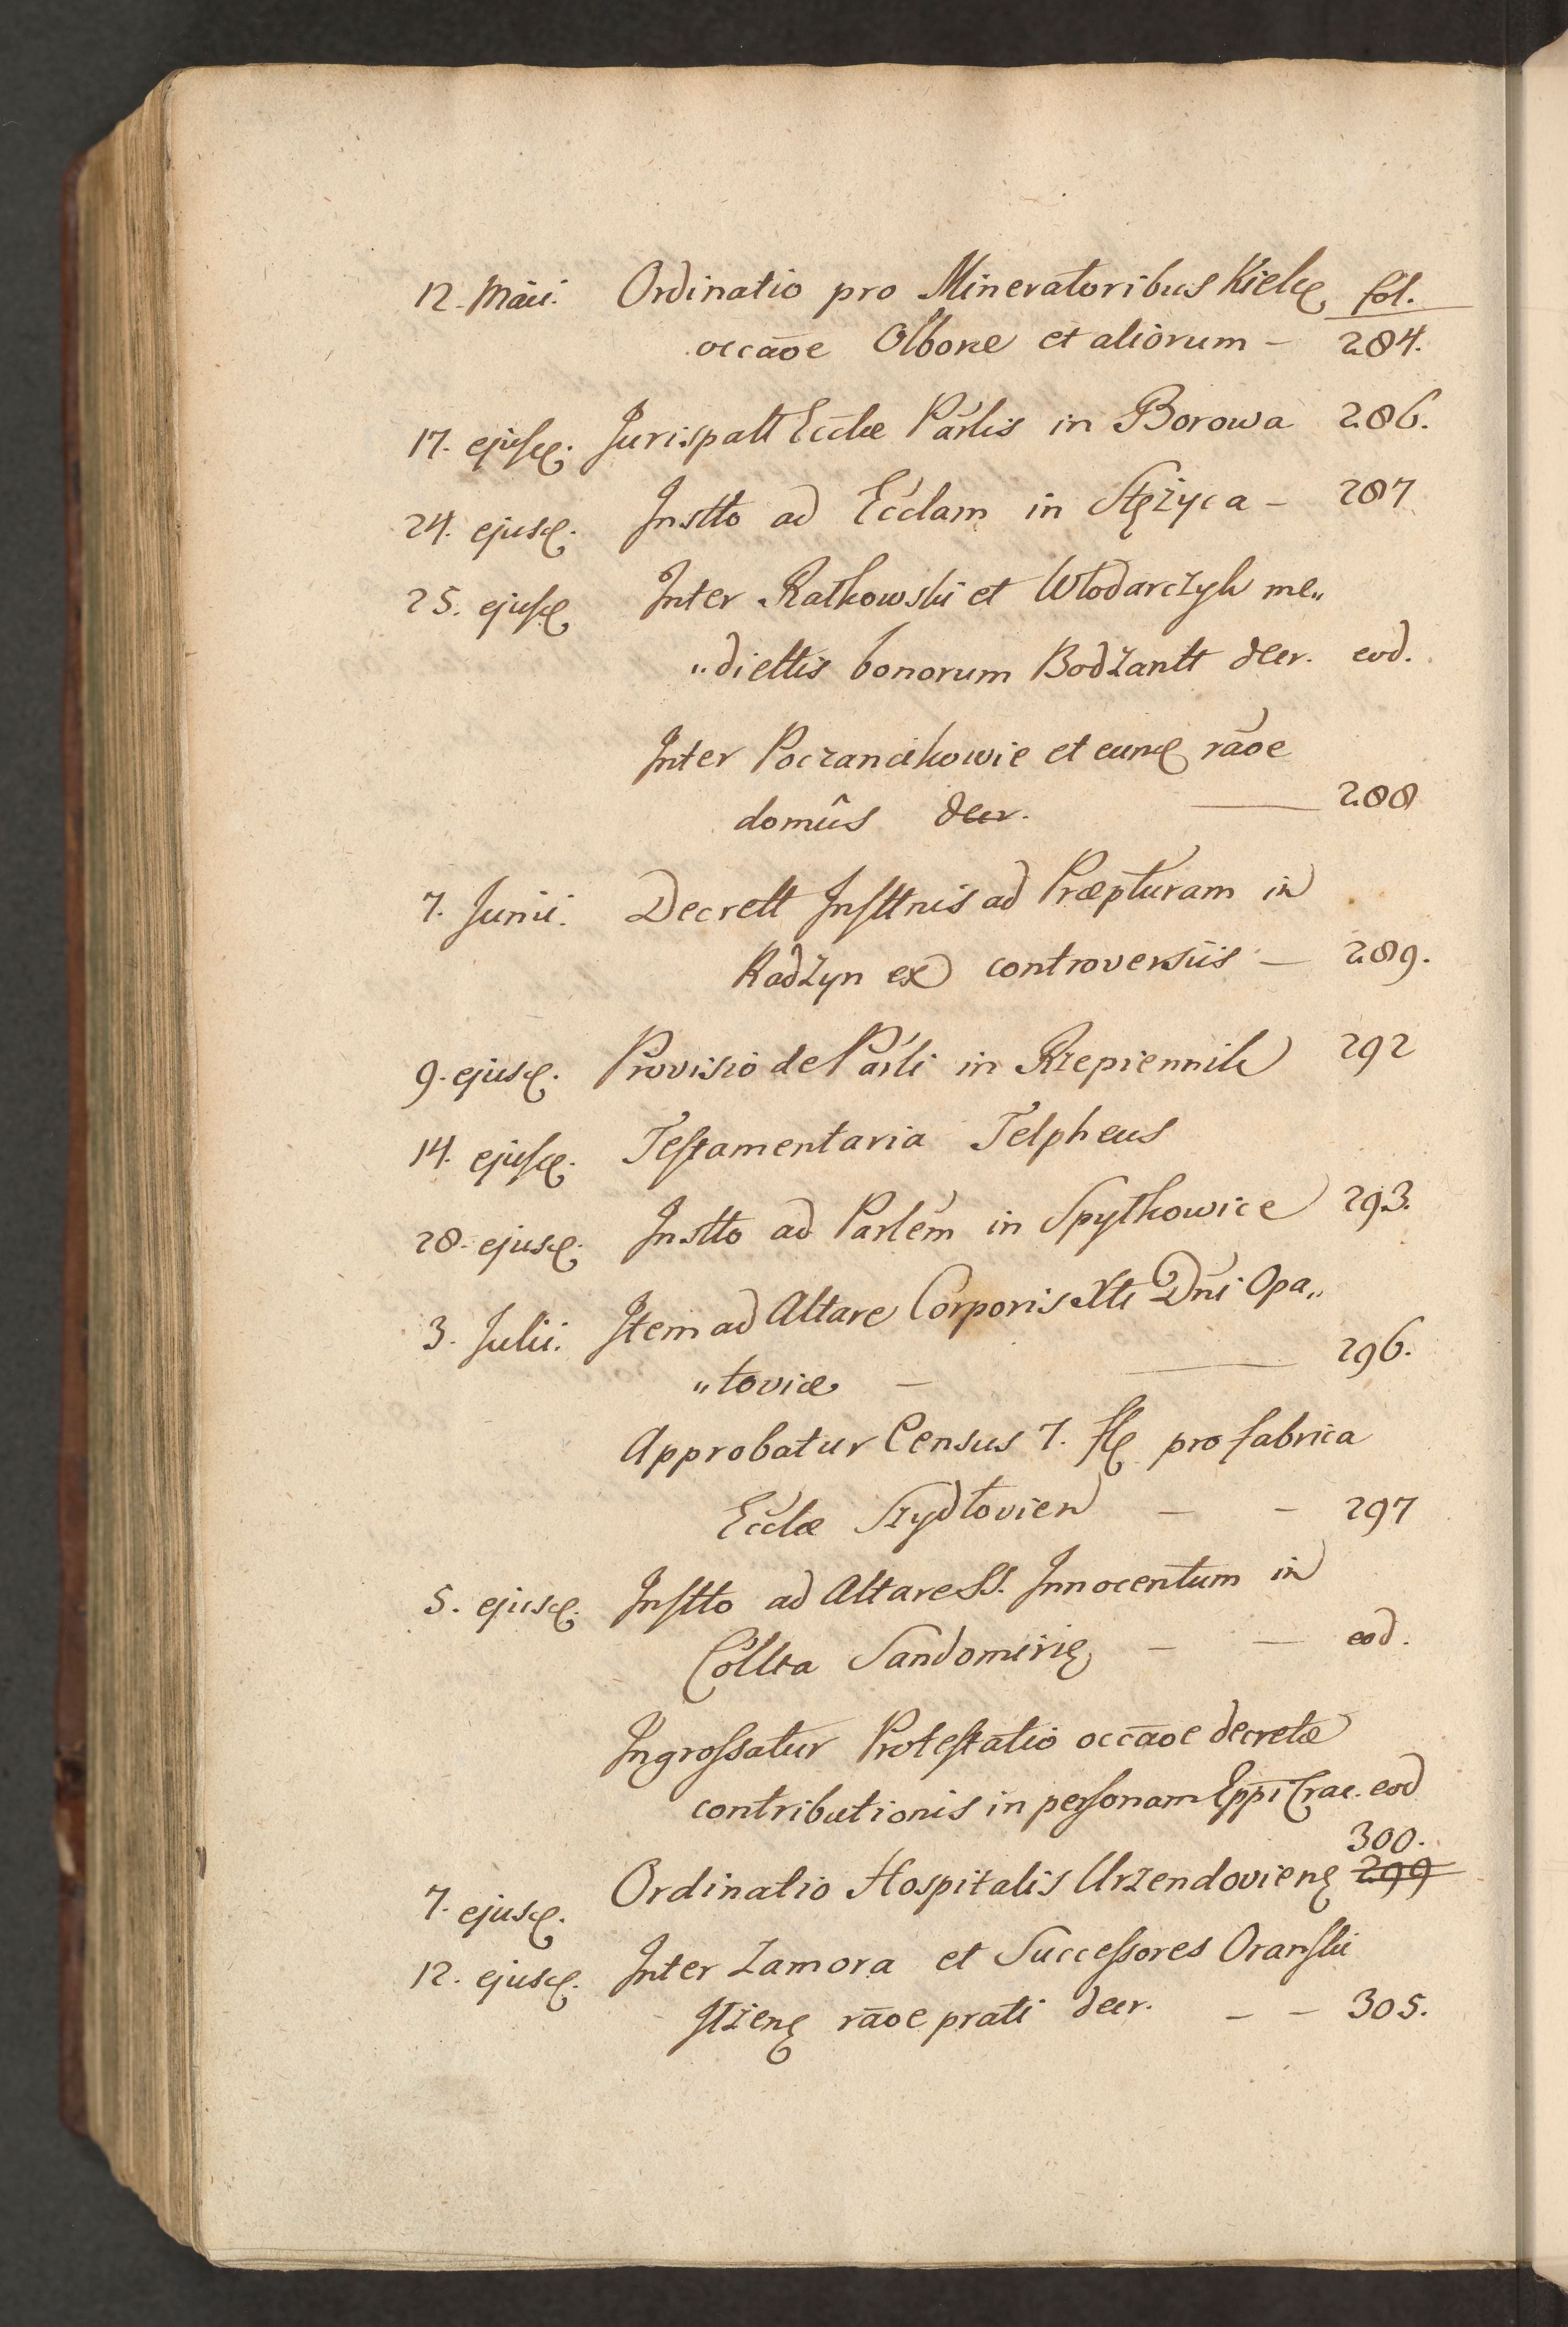 12. Maii. Ordinatio pro Mineratoribus Kielcę fol.
occaōe Olbore et aliorum - 284.
17. ejusd. Jurispatt Ecclæ Parlis in Borowa 286.
24. ejusd. Instto ad Ecclam in Stężyca - 287
25. ejusd. Inter Ratkowski et Włodarczyk me„
„diettis bonorum Bodzantt decr. eod.
Inter Poczancikowie et eund. rāoe
domûs decr. — 288
7. Junii. Decrett Insttnis ad Præpturam in
Radzyn ex controversiis — 289.
9. ejusd. Provisio de Parli in Rzepiennik 292
14. ejusd. Testamentaria Telpheus
28. ejusd. Instto ad Parlem in Spytkowice 293.
3. Julii. Item ad Altare Corporis Xti Dni Opa„
„toviæ — — 296.
Approbatur Census 7. fl. pro fabrica
Ecclæ Szydlovien — - 297
5. ejusd. Instto ad Altare SS. Innocentum in
Collta Sandomirię — — eod.
Ingrossatur Protestatio occāoe decretæ
contributionis in personam Eppi Crac. eod
300.
7. ejusd. Ordinatio Hospitalis Urzendovienę 299
12. ejusd. Inter Zamora et Successores Oranski
Iłzenę rāoe prati decr. - - 305.